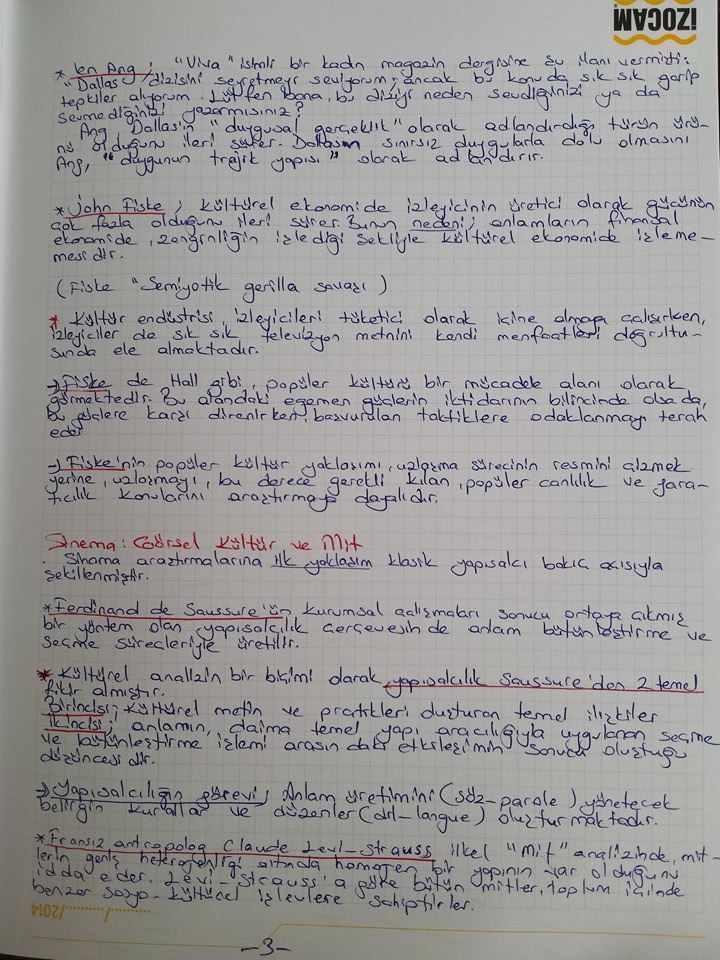 İZOCAM
* Ien Ang ; "Viva" isimli bir kadın magazin dergisine şu ilanı vermişti:
"Dallas dizisini seyretmeyi seviyorum; ancak bu konuda sık sık garip
tepkiler alıyorum. Lütfen bana, bu diziyi neden sevdiğinizi ya da
sevmediğinizi yazarmısınız?
Ang Dallas'ın "duygusal gerçeklik" olarak adlandırdığı türün ürü-
nü olduğunu ileri sürer. Dallasın sınırsız duygularla dolu olmasını
Ang, "duygunun trajik yapısı" olarak adlandırır.
* John Fiske ; kültürel ekonomide izleyicinin üretici olarak gücünün
çok fazla olduğunu ileri sürer. Bunun nedeni; anlamların finansal
ekonomide, zenginliğin izlediği şekliyle kültürel ekonomide izleme-
mesidir.
(Fiske "Semiyotik gerilla savaşı)
* Kültür endüstrisi, izleyicileri tüketici olarak içine almaya çalışırken,
izleyiciler de sık sık televizyon metnini kendi menfaatleri doğrultu-
sunda ele almaktadır.
→ Fiske de Hall gibi, popüler kültürü bir mücadele alanı olarak
görmektedir. Bu alandaki egemen güçlerin iktidarının bilincinde olsa da,
bu güçlere karşı direnirken, başvurulan taktiklere odaklanmayı tercih
eder
→ Fiske'nin popüler kültür yaklaşımı, uzlaşma sürecinin resmini çizmek
yerine, uzlaşmayı, bu derece gerekli kılan, popüler canlılık ve yara-
tıcılık konularını araştırmaya dayalıdır.
Sinema: Görsel Kültür ve Mit
. Sinama araştırmalarına ilk yaklaşım klasik yapısalcı bakış açısıyla
şekillenmiştir.
* Ferdinand de Saussure'ün kurumsal çalışmaları sonucu ortaya çıkmış
bir yöntem olan yapısalcılık çerçevesinde anlam bütünleştirme ve
seçme süreçleriyle üretilir.
* Kültürel analizin bir biçimi olarak yapısalcılık Saussure'den 2 temel
fikir almıştır.
Birincisi; kültürel metin ve pratikleri oluşturan temel ilişkiler
İkincisi; anlamın, daima temel yapı aracılığıyla uygulanan seçme
ve bütünleştirme işlemi arasındaki etkileşimin sonucu oluştuğu
düşüncesidir.
→ Yapısalcılığın görevi; Anlam üretimini (söz-parole) yönetecek
belirgin kurallar ve düzenler (dil-langue) oluşturmaktadır.
* Fransız antropolog Claude Levi-Strauss ilkel "Mit" analizinde, mit-
lerin geniş heterojenliği altında homojen bir yapının var olduğunu
iddia eder. Levi-Strauss'a göre bütün mitler, toplum içinde
benzer sosyo-kültürel işlevlere sahiptirler.
/2014
-3-